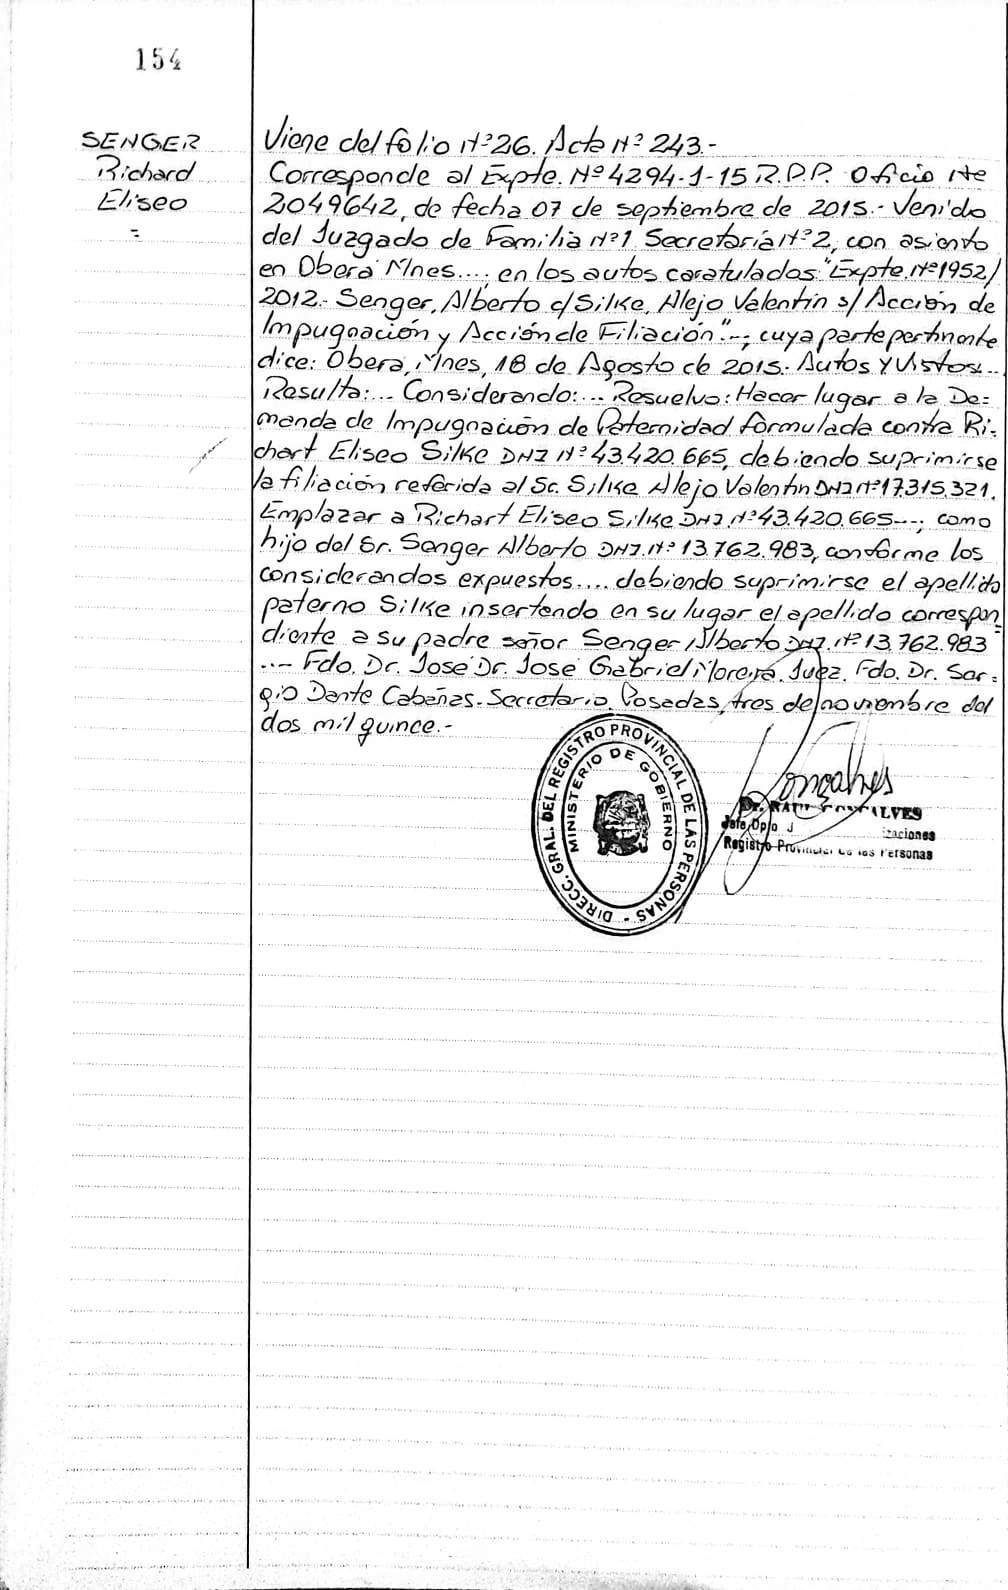 154
SENGER
Richard
Eliseo
=
Viene del folio Nº 26. Acta Nº 243.-
Corresponde al Expte. Nº 4294-1-15 R.P.P. Oficio Nº
2049642, de fecha 07 de septiembre de 2015.- Venido
del Juzgado de Familia Nº1 Secretaría Nº 2, con asiento
en Oberá Mnes...; en los autos caratulados: "Expte. Nº 1952/
2012.- Senger, Alberto c/ Silke, Alejo Valentin s/ Acción de
Impugnación y Acción de Filiación".-; cuya parte pertinente
dice: Obera, Mnes, 18 de Agosto de 2015. Autos Y Vistos:...
Resulta:... Considerando:... Resuelvo: Hacer lugar a la De=
manda de Impugnación de Paternidad formulada contra Ri-
chart Eliseo Silke DNI Nº 43.420.665, debiendo suprimirse
la filiación referida al Sr. Silke Alejo Valentin DNI Nº 17.315.321.
Emplazar a Richart Eliseo Silke DNI Nº 43.420.665---; como
hijo del Sr. Senger Alberto DNI. Nº 13.762.983, conforme los
considerandos expuestos.... debiendo suprimirse el apellido
paterno Silke insertando en su lugar el apellido correspon-
diente a su padre señor Senger Alberto DNI. Nº 13.762.983
...- Fdo. Dr. José Dr. José Gabriel Moreira. Juez. Fdo. Dr. Ser=
gio Dante Cabañas. Secretario. Posadas, tres de noviembre del
dos mil quince.-
DIRECC. GRAL. DEL REGISTRO PROVINCIAL DE LAS PERSONAS -
MINISTERIO DE GOBIERNO
Gonçalves
Dr. RAUL GONCALVES
Jefe Dpto J
Registro Provincial de las Personas